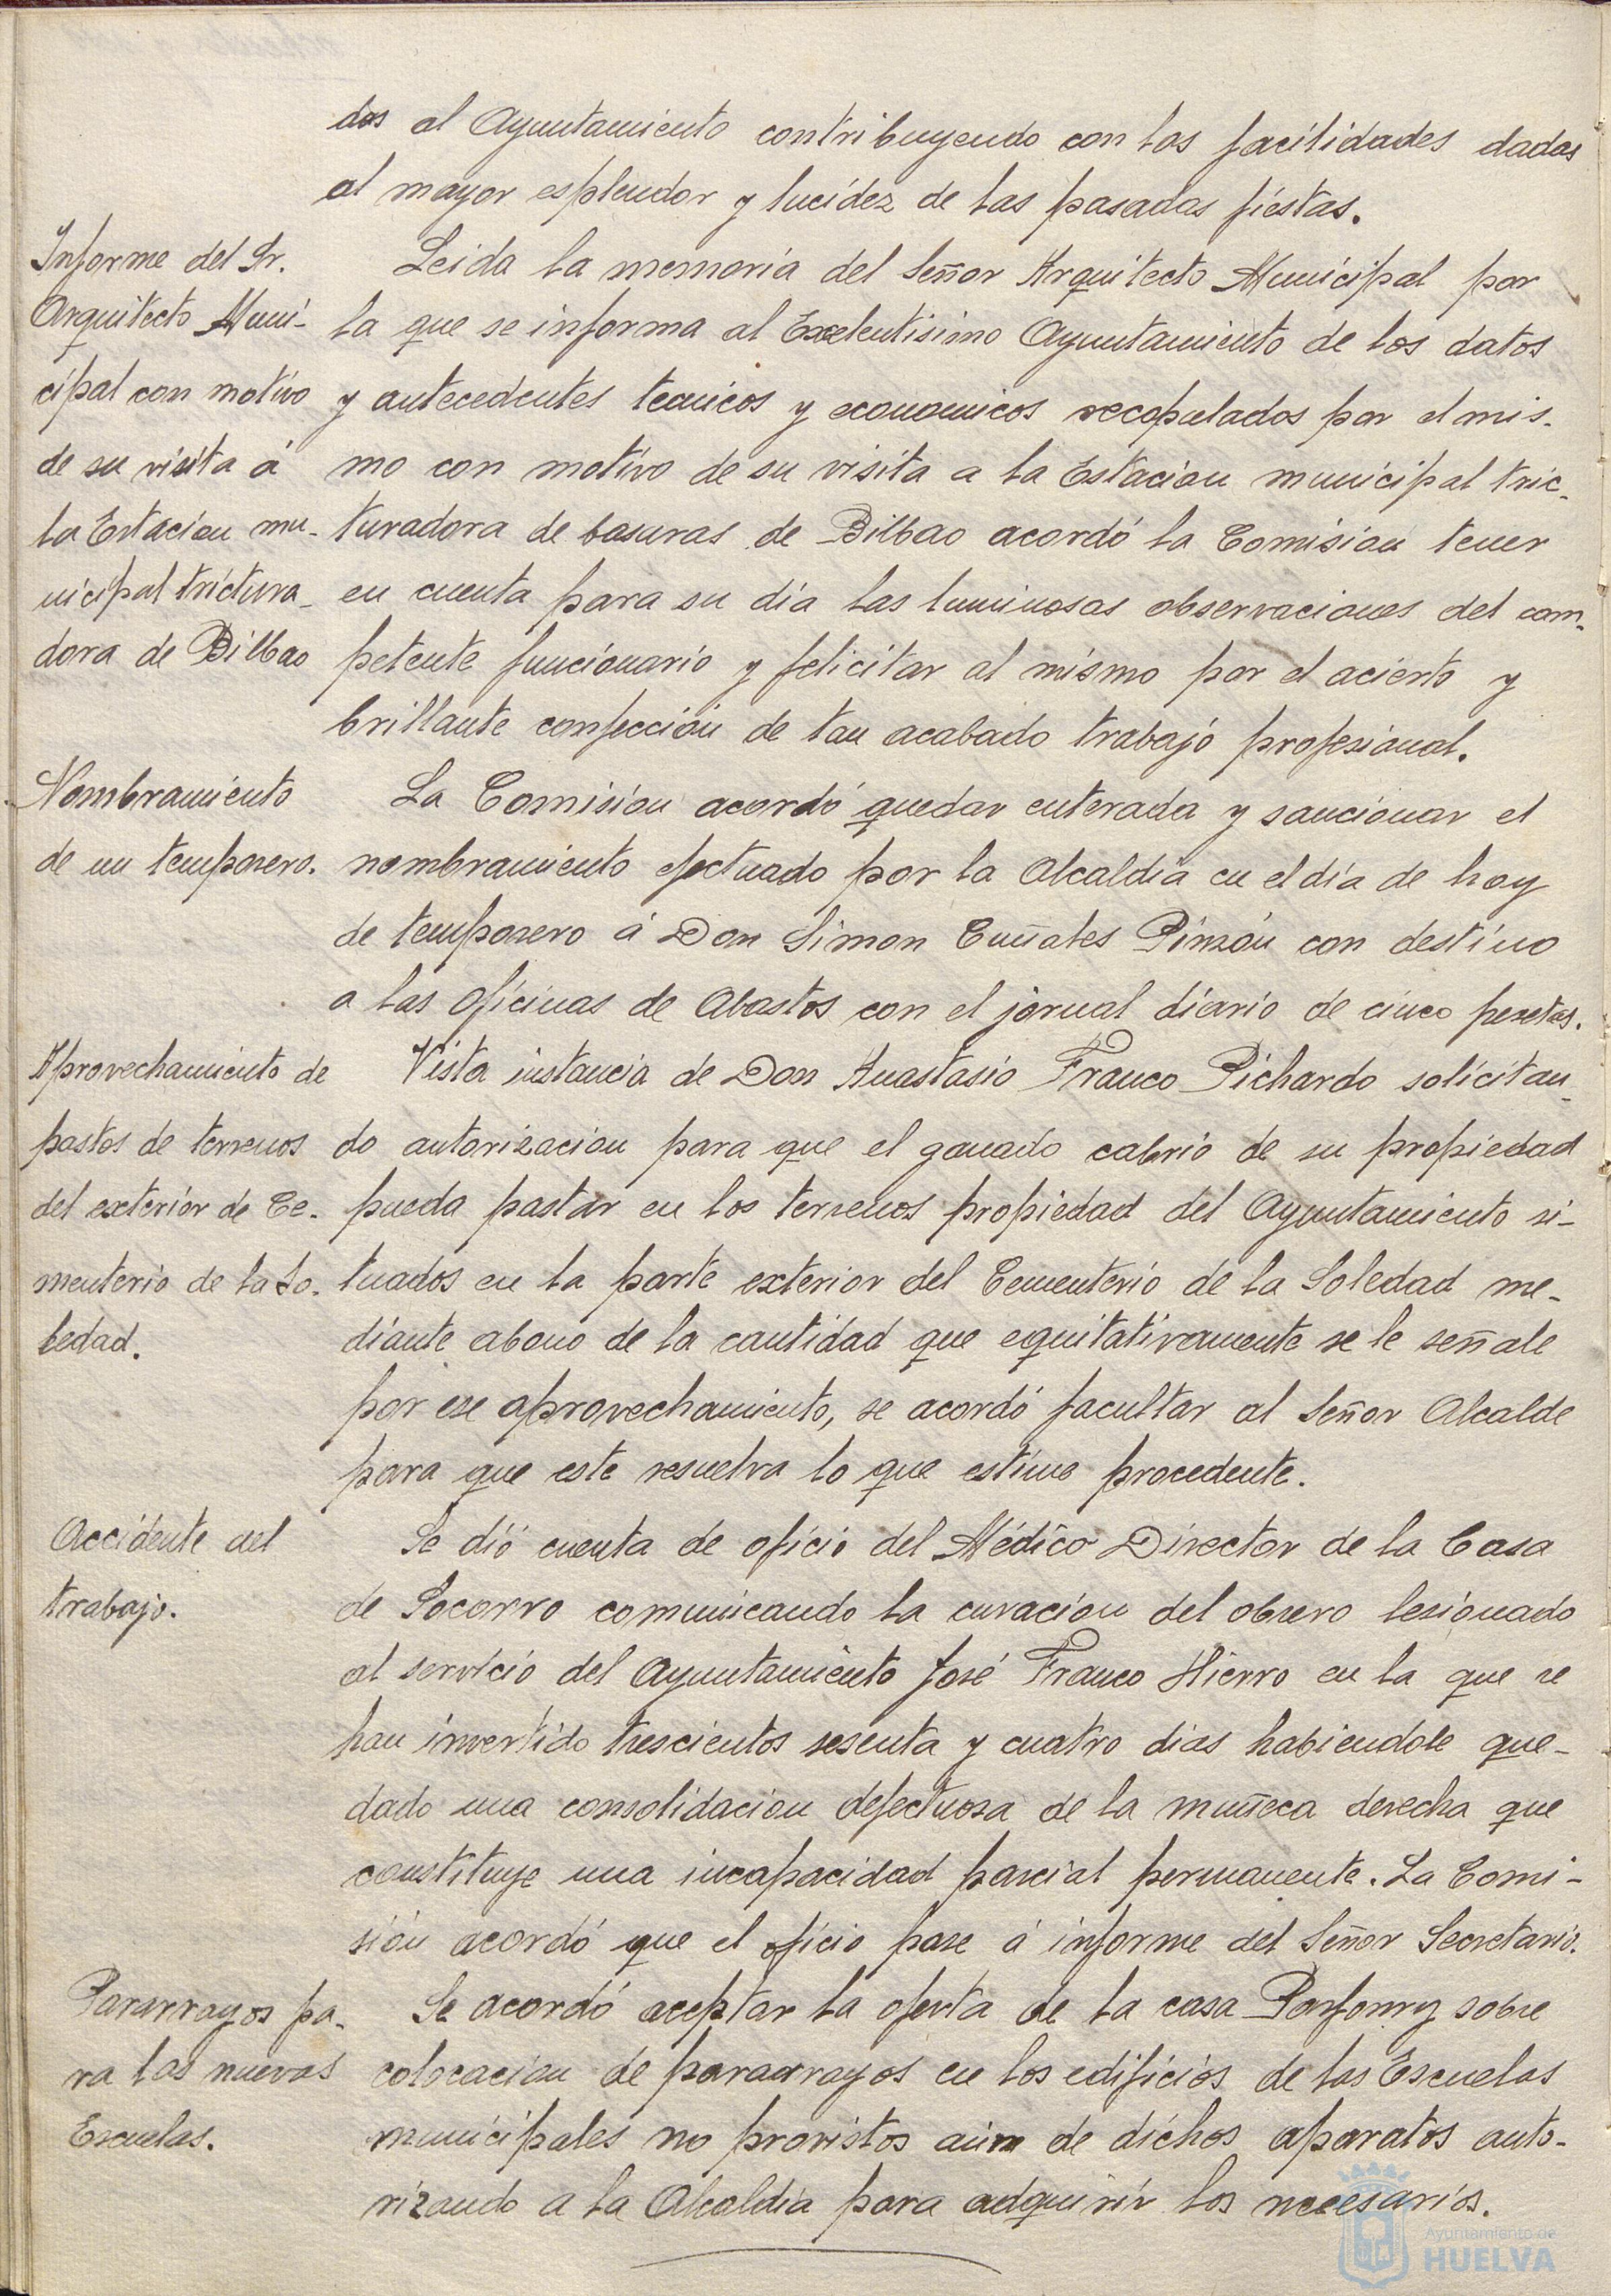 dos al Ayuntamiento contribuyendo con las facilidades dadas
al mayor esplendor y lucídez de las pasadas fiestas.
Informe del Sr.
Arquitecto Muni-
cipal con motivo
de su visita á
la Estacion mu-
nicipal trictura-
dora de Bilbao
Leida la memoria del Señor Arquitecto Municipal por
la que se informa al Exelentisimo Ayuntamiento de los datos
y antecedentes tecnicos y economicos recopulados por el mis-
mo con motivo de su visita a la Estacion municipal tric-
turadora de basuras de Bilbao acordó la Comision tener
en cuenta para su dia las luminosas observaciones del com-
petente funcionario y felicitar al mismo por el acierto y
brillante confección de tan acabado trabajo profesional.
Nombramiento
de un temporero.
La Comision acordó quedar enterada y sancionar el
nombramiento efectuado por la Alcaldia en el dia de hoy
de temporero á Don Simon Cuñales Pinzón con destino
a las oficinas de Abastos con el jornal diario de cinco pesetas.
Aprovechamiento de
pastos de terrenos
del exterior de Ce-
menterio de la So-
ledad.
Vista instancia de Don Anastasio Franco Pichardo solicitan-
do autorizacion para que el ganado cabrio de su propiedad
pueda pastar en los terrenos propiedad del Ayuntamiento si-
tuados en la parte exterior del Cementerio de la Soledad me-
diante abono de la cantidad que equitativamente se le señale
por ese aprovechamiento, se acordó facultar al Señor Alcalde
para que este resuelva lo que estime procedente.
Accidente del
trabajo.
Se dió cuenta de oficio del Médico Director de la Casa
de Socorro comunicando la curacion del obrero lesionado
al servicio del Ayuntamiento José Franco Hierro en la que se
han invertido trescientos sesenta y cuatro dias habiendole que-
dado una consolidacion defectuosa de la muñeca derecha que
constituye una incapacidad parcial permanente. La Comi-
sión acordó que el oficio pase á informe del Señor Secretario.
Pararrayos pa-
ra las nuevas
Escuelas.
Se acordó aceptar la oferta de la casa Parfonry sobre
colocacion de pararrayos en los edificios de las Escuelas
municipales no provistos aun de dichos aparatos auto-
rizando a la Alcaldia para adquirir los necesarios.
Ayuntamiento de
HUELVA